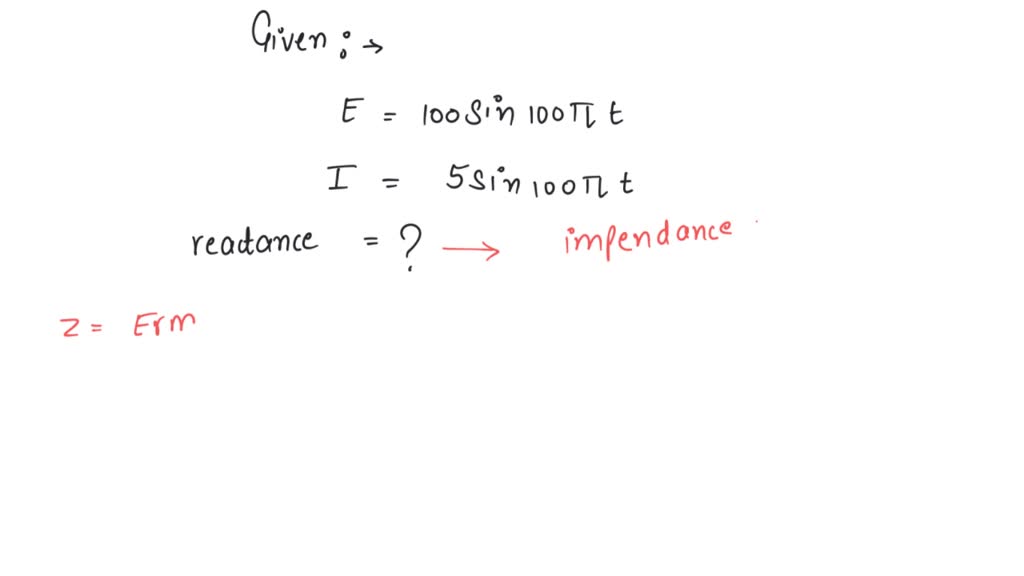 Given :→
E = 100 Sin 100 π t
I = 5 sin 100 π t
readance = ? → impendance
z = Erm